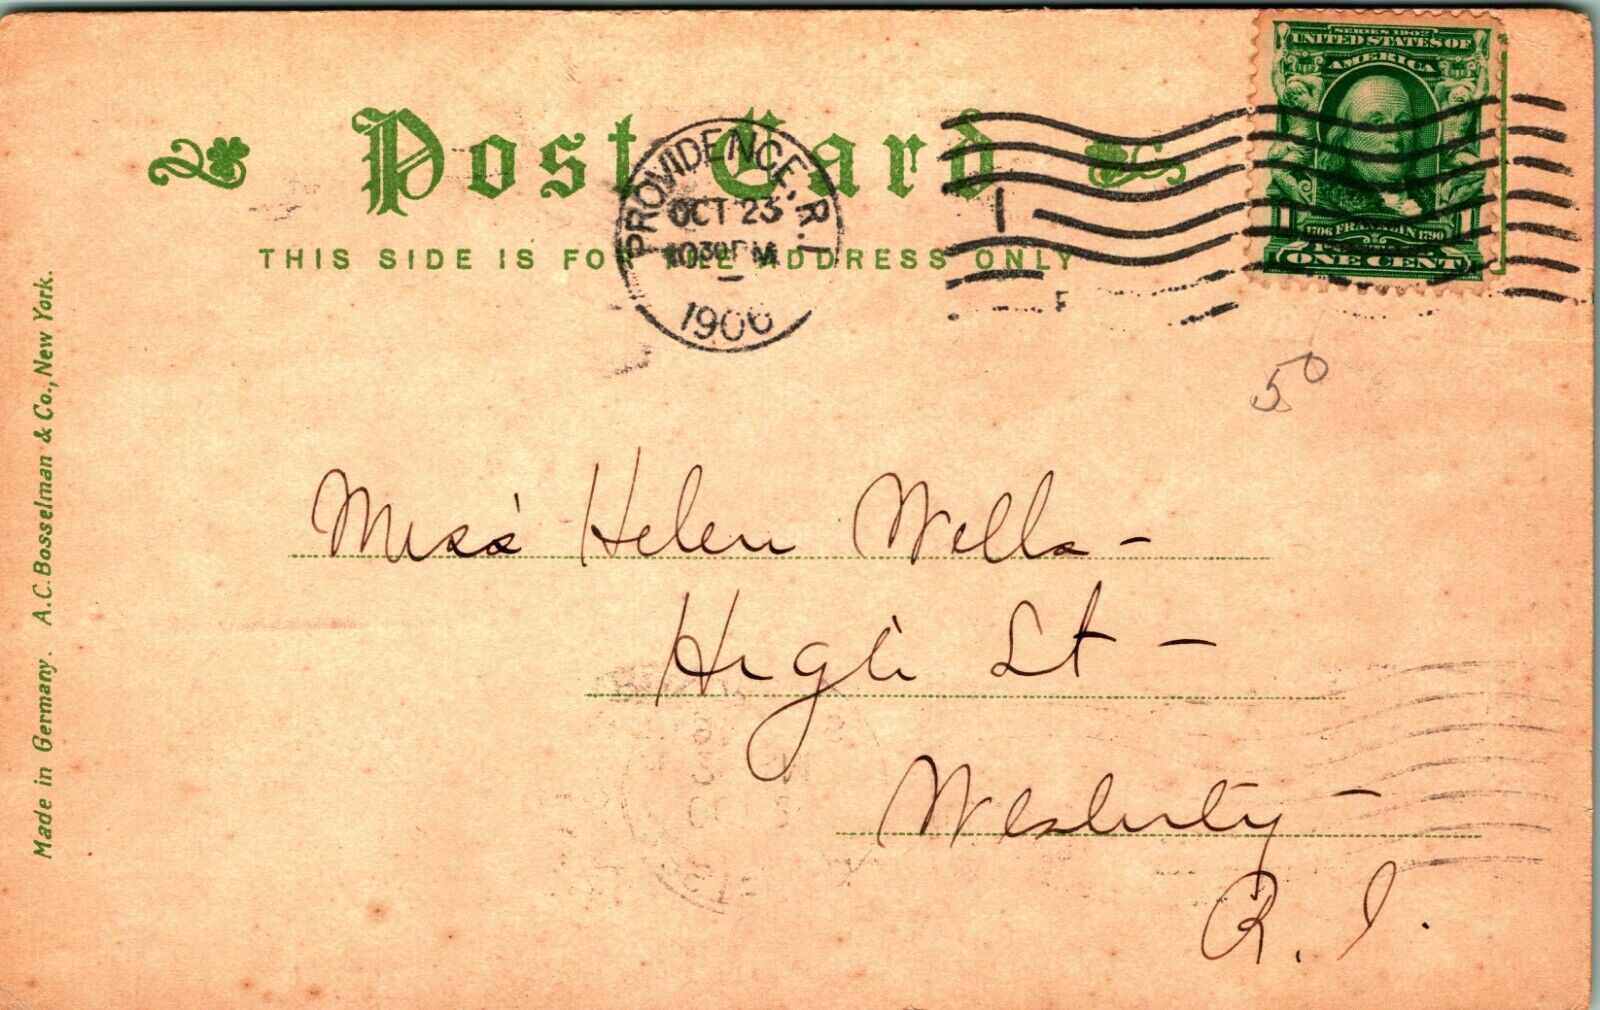 SERIES 1902
UNITED STATES OF
AMERICA
Post Card
PROVIDENCE, R.I.
OCT 23
1030 PM
1906
THIS SIDE IS FOR THE ADDRESS ONLY
1 1
1706 FRANKLIN 1790
ONE CENT
50
Miss Helen Wells -
High St -
Westerly -
R. I.
Made in Germany. A. C. Bosselman & Co., New York.